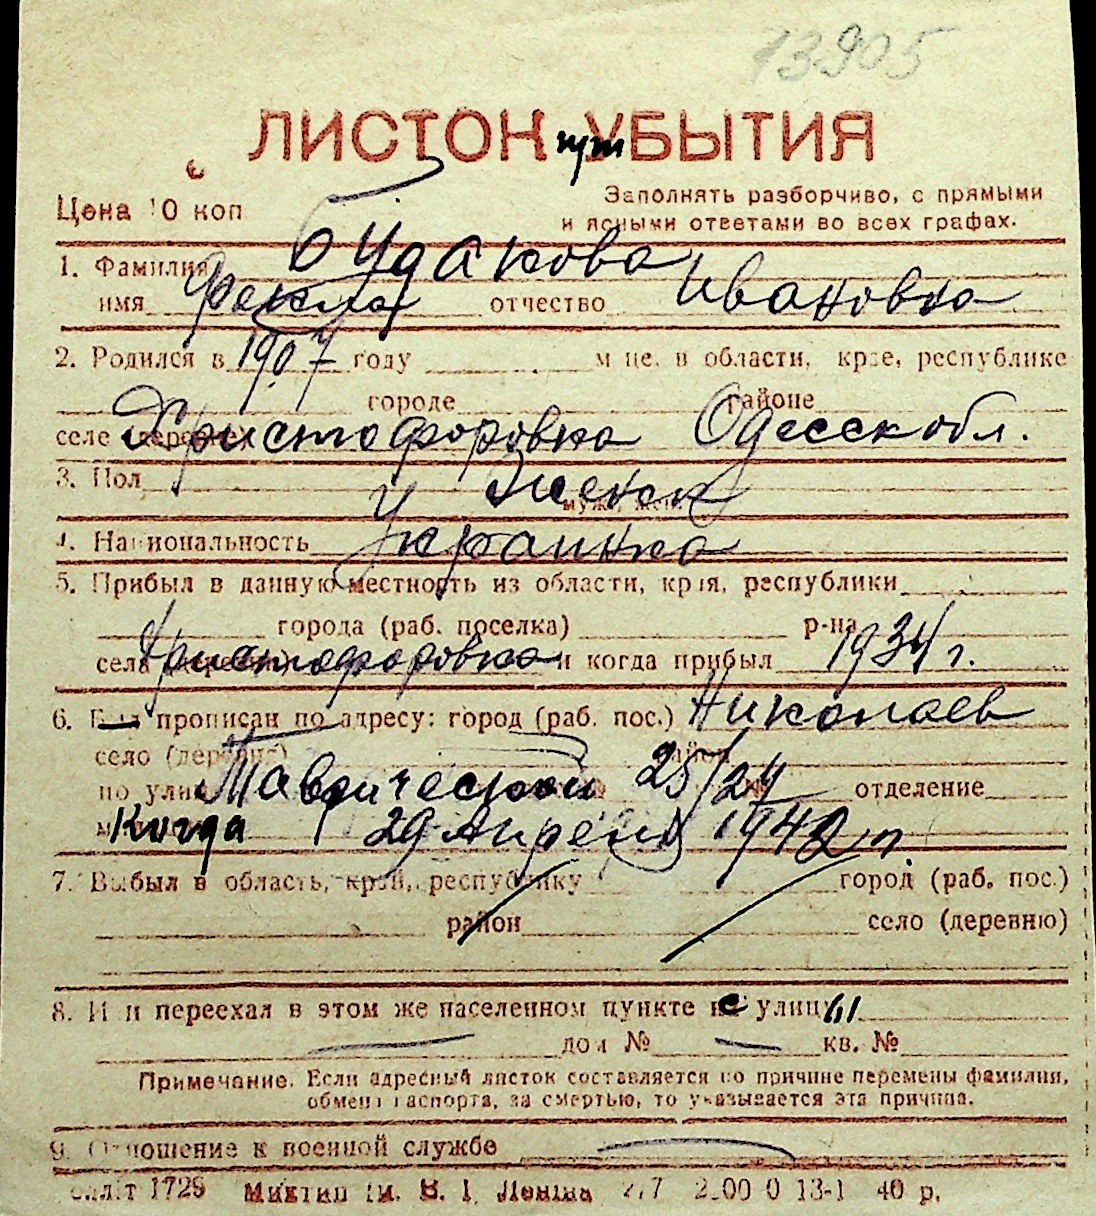 13905
ЛИСТОК при УБЫТИЯ
Цена 10 коп
Заполнять разборчиво, с прямыми
и ясными ответами во всех графах.
1. Фамилия Будакова
имя Фекла отчество Ивановна
2. Родился в 1907 году м-це, в области, крае, республике
городе районе
селе (деревне) Христофоровка Одесск обл.
3. Пол Женск
муж., жен.
4. Национальность Украинка
5. Прибыл в данную местность из области, края, республики
города (раб. поселка) р-на
села (деревни) Христофоровка и когда прибыл 1934 г.
6. Был прописан по адресу: город (раб. пос.) Николаев
село (деревня) район
по улице Таврической 25/24 отделение
Когда 29 Апреля 1942 г.
7. Выбыл в область, край, республику город (раб. пос.)
район село (деревню)
8. Или переехал в этом же населенном пункте не улицы
дом № кв. №
Примечание. Если адресный листок составляется по причине перемены фамилии,
обмена паспорта, за смертью, то указывается эта причина.
9. Отношение к военной службе
1729 им. В. І. Леніна 13-1 40 р.